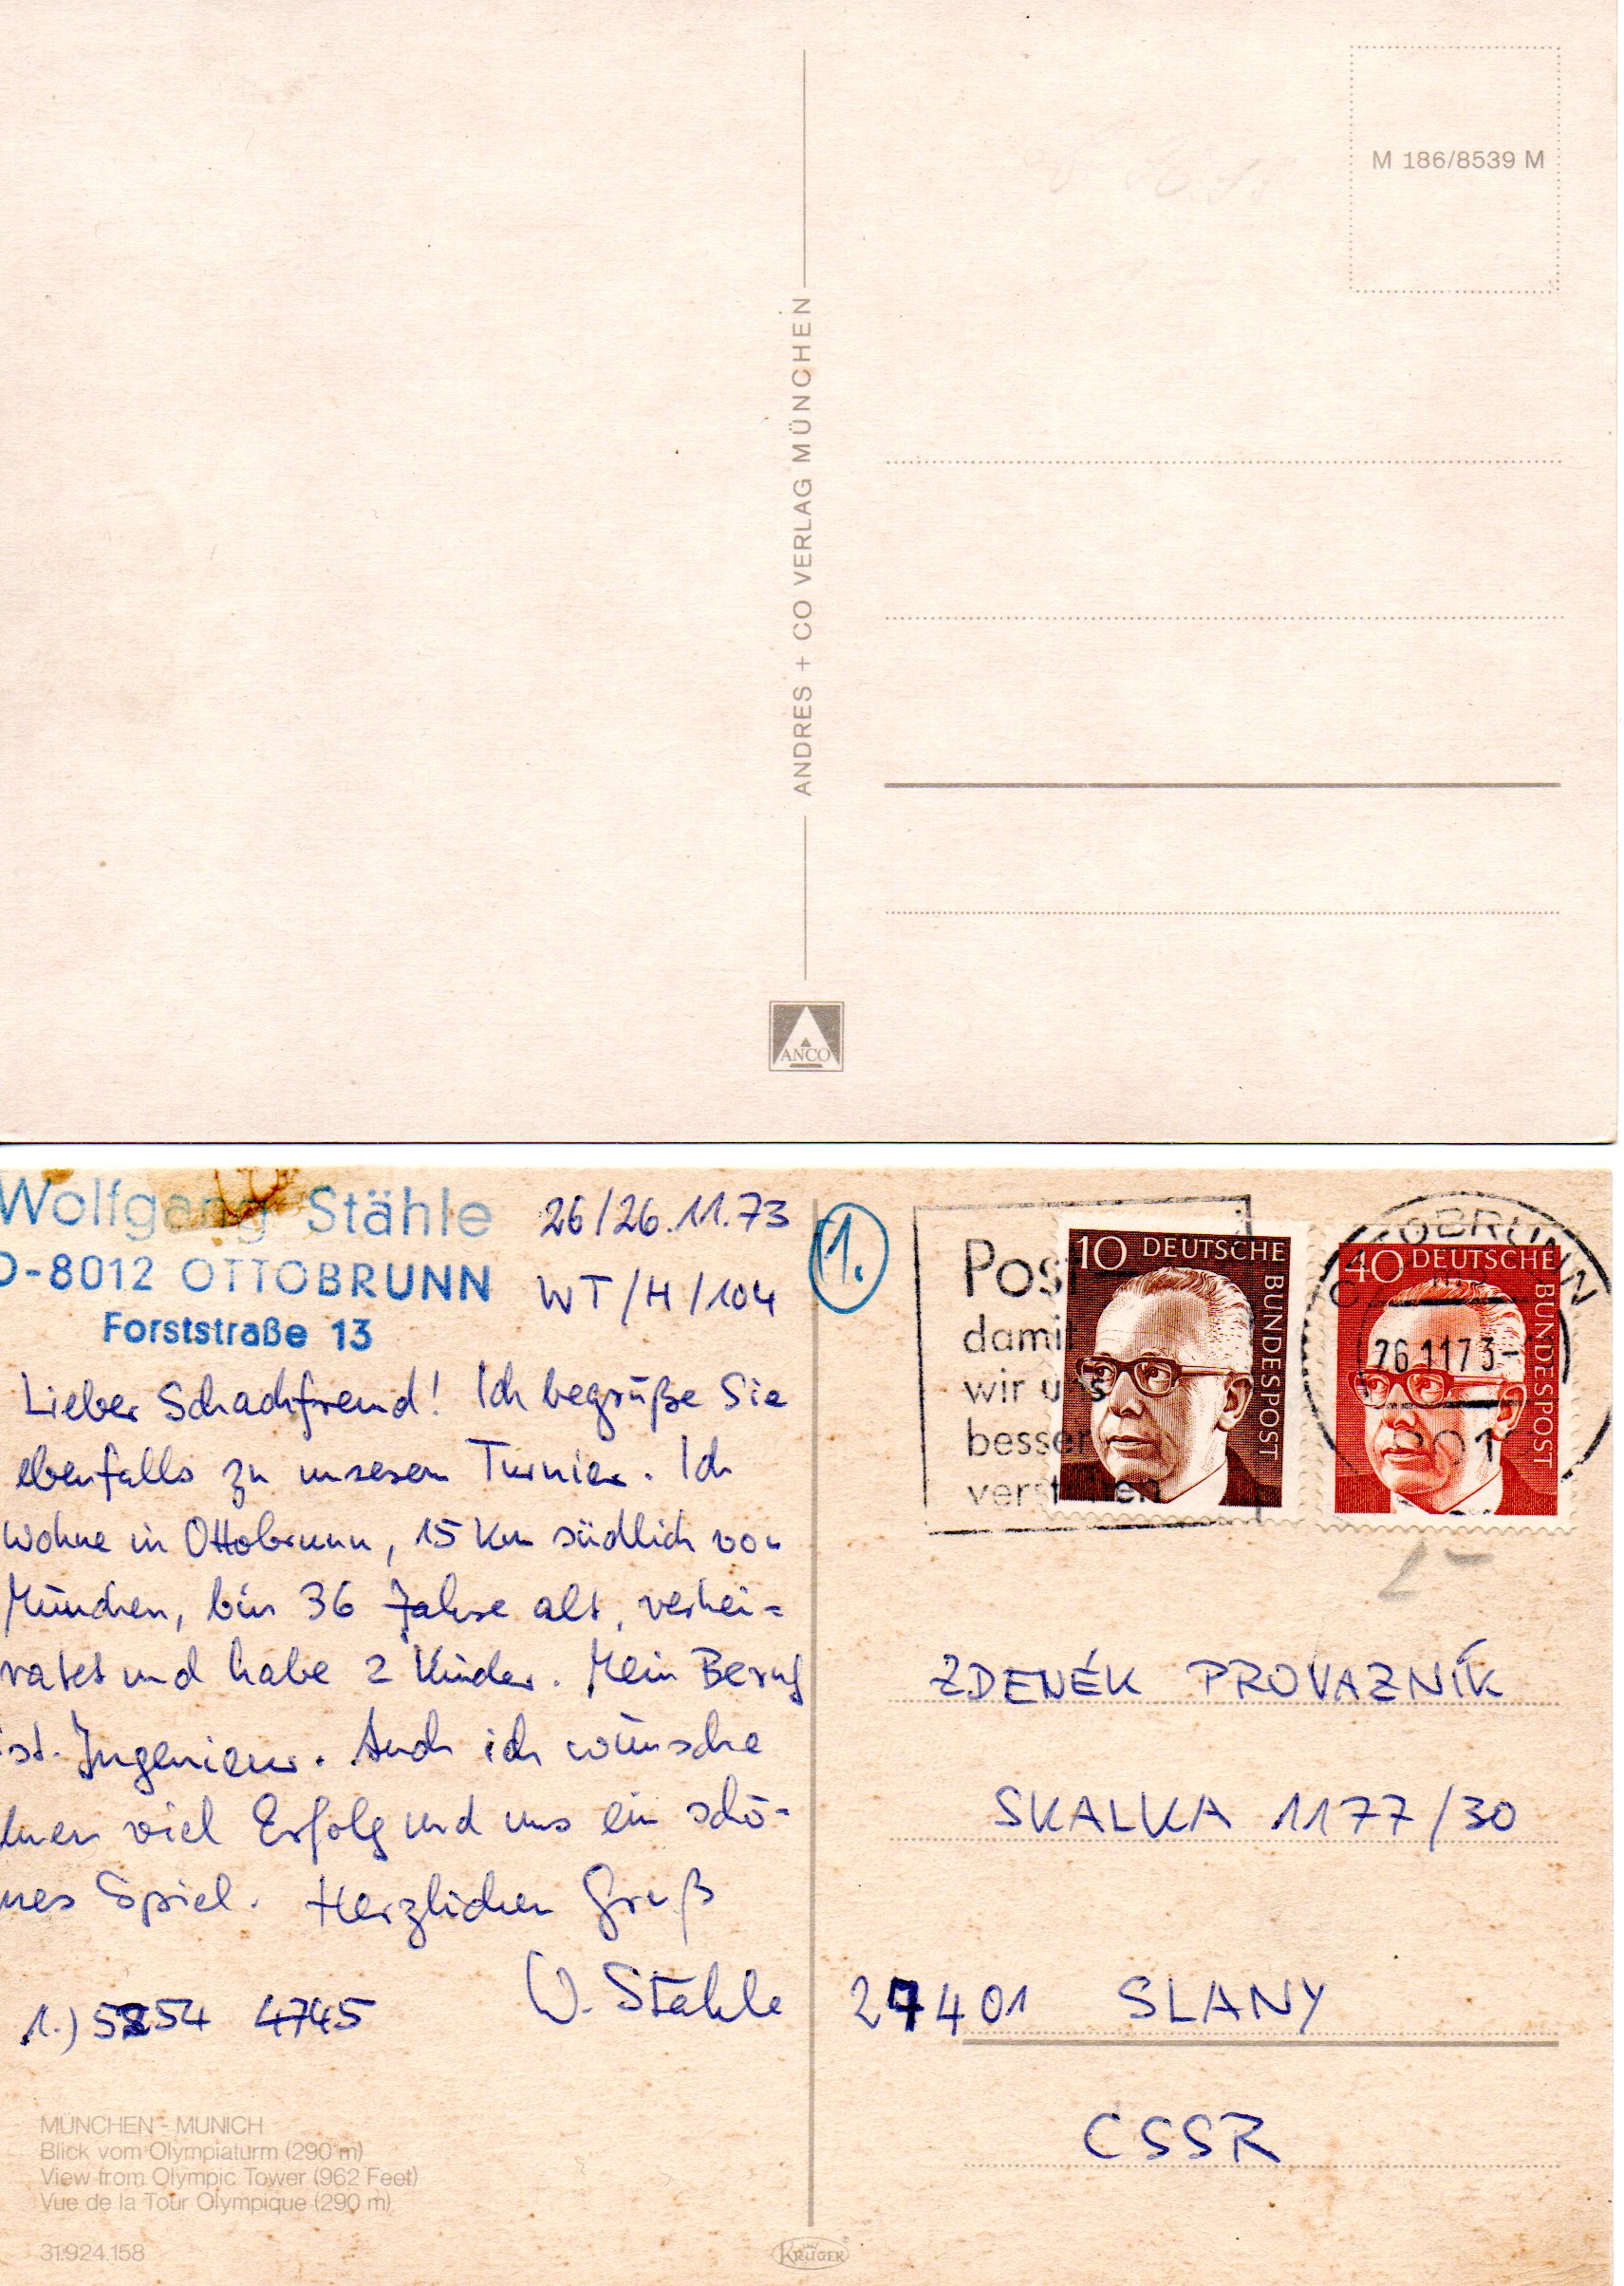 M 186/8539 M
ANDRES + CO VERLAG MÜNCHEN
ANCO
Wolfgang Stähle
D-8012 OTTOBRUNN
Forststraße 13
26/26.11.73
WT/H/104
1.
Lieber Schachfreund! Ich begrüße Sie
ebenfalls zu unserem Turnier. Ich
wohne in Ottobrunn, 15 km südlich von
München, bin 36 Jahre alt, verhei=
ratet und habe 2 Kinder. Mein Beruf
ist Ingenieur. Auch ich wünsche
Ihnen viel Erfolg und uns ein schö-
nes Spiel. Herzlichen Gruß
W. Stähle
1.) 5254 4745
MÜNCHEN - MUNICH
Blick vom Olympiaturm (290 m)
View from Olympic Tower (962 Feet)
Vue de la Tour Olympique (290 m)
31.924.158
KRÜGER
Post
damit
wir uns
besser
verstehen
10 DEUTSCHE
BUNDESPOST
40 DEUTSCHE
BUNDESPOST
OTTOBRUNN
26.11.73-
801
ZDENÉK PROVAZNÍK
SKALKA 1177/30
27401 SLANY
CSSR